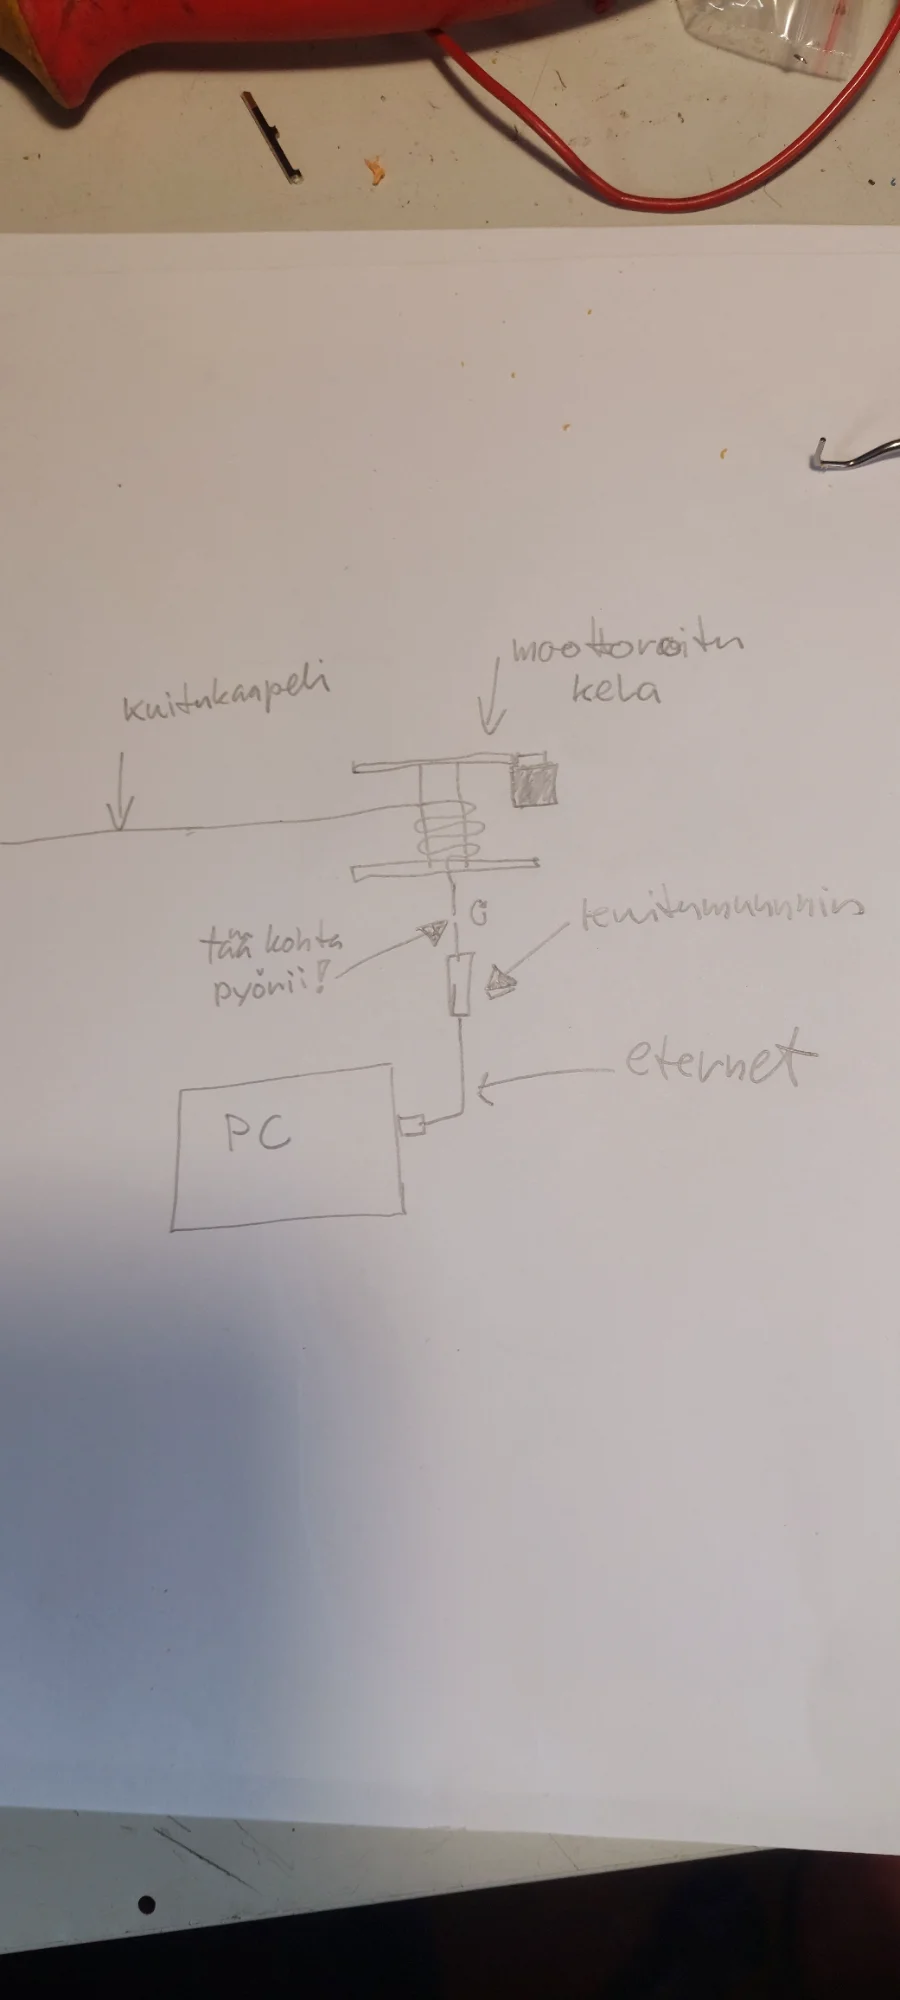 moottoroitu
kela
kuitukaapeli
tää kohta
pyörii!
kuitumuunnin
eternet
PC